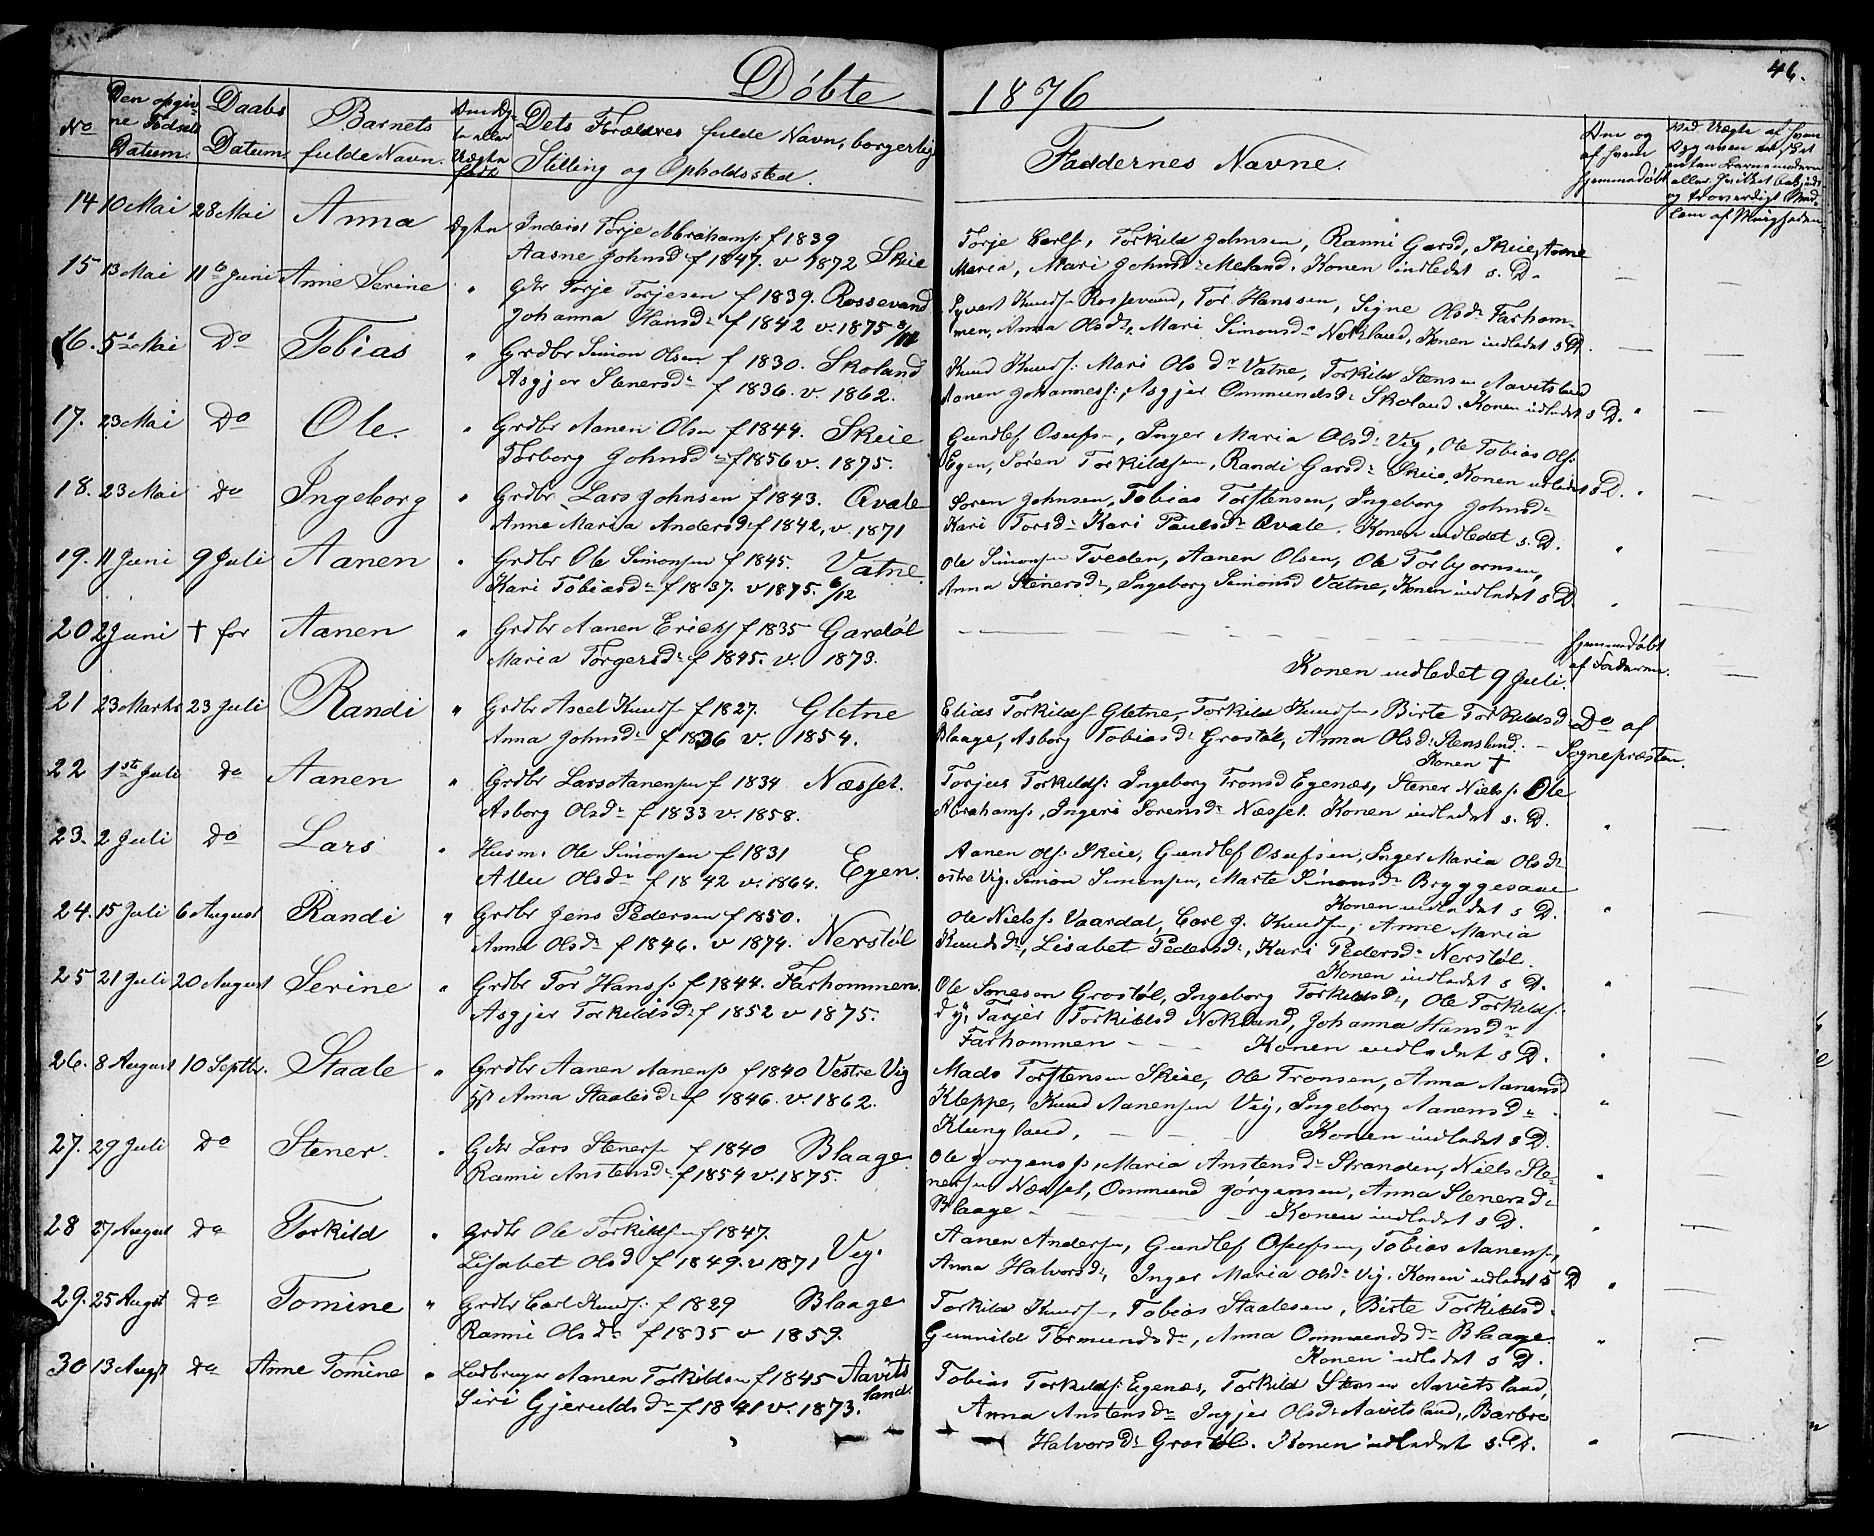 46.
Döbte 1876
No
Den opgivne Födsels Datum.
Daabs Datum.
Barnets fulde Navn.
Om Ægte eller Uægte født
Dets Forældres fulde Navn, borgerlig
Stilling og Opholdssted.
Faddernes Navne.
Om og af hvem hjemmedøbt
14 10 Mai 28 Mai Anna Ægte Inderst Torje Abrahams f 1839
Aasne Johnsdr f 1847. v 1872 Skeie
Torje Carls, Torkild Johnsen, Ranni Garsd, Skeie, Anne
Maria, Mari Johnsdr Meland. Konen indledet s. D.
15 13 Mai 11te Juni Anne Serine " Gdbr Torje Torjesen f 1839. Rossevand
Johanna Hansdr f 1842 v. 1875
Syvert Knuds Rossevand, Tor Hanssen, Signe Olsdr Farhom-
men, Anna Olsdr, Mari Simonsdr Nokland, Konen indledet s D.
16. 5te Mai Do Tobias " Grdbr Simon Olsen f 1830. Skoland
Asgjer Stenersdr f 1836. v. 1862.
Knud Knuds. Mari Olsdr Vatne, Torkild Stensen Aavitsland
Aanen Johanness:, Asgjer Ommundsdr Skoland. Konen indledet s D.
17. 23 Mai Do Ole. " Grdbr Aanen Olsen f 1844. Skeie
Torborg Johnsdr f 1856 v. 1875.
Gundlef Osufsen, Inger Maria Olsdr Vig, Ole Tobias Ols:
Egen, Sören Torkildsen, Randi Garsdr Skeie, Konen indledet s D.
18. 23 Mai Do Ingeborg " Grdbr Lars Johnsen f 1843. Qvale
Anne Maria Andersdr f 1842, v. 1871
Soren Johnsen, Tobias Torstensen, Ingeborg Johnsdr
Kari Torsdr Kari Paulsdr Qvale. Konen indledet s. D.
19. 11 Juni 9 Juli Aanen " Grdbr Ole Simonsen f 1845. Vatne.
Kari Tobiasdr f 1837. v 1875. 6/12
Ole Simonsen Tveden, Aanen Olsen, Ole Torbjornsen,
Anna Stenersdr, Ingeborg Simonsd Vatne, Konen indledet s D.
20 2 Juni † for Aanen " Grdbr Aanen Ericks f 1835 Gardöl
Maria Torgersdr f 1845. v. 1873.
Konen indledet 9 Juli.
hjemmedøbt af Faderen.
21 23 Marts 23 Juli Randi " Grdbr Axel Knuds f 1827. Gletne
Anna Johnsdr f 1836 v. 1854.
Elias Torkilds Gletne, Torkild Knudsen, Birte Torkildsdr
Blaage, Asborg Tobiasdr Grostöl, Anna Olsdr Stensland.
Konen †
Do af Sognepræsten.
22 1st Juli do Aanen " Grdbr Lars Aanensen f 1834 Næsset.
Asborg Olsdr f 1833 v. 1858.
Torjus Torkilds: Ingeborg Tronsd Egenæs, Stener Niels: Ole
Abrahams, Ingeri Sorensdr Næsset. Konen indledet s. D.
23. 2 Juli do Lars " Husm. Ole Simonsen f 1831 Egen.
Allu Olsdr f 1842 v. 1864.
Aanen Ols Skeie, Gundlef Osufsen, Inger Maria Olsdr
ostre Vig. Simon Simonsen, Marte Simonsdr Bryggesaae
Konen indledet s D.
24. 15 Juli 6 August Randi " Grdbr Jens Pedersen f 1850.
Anna Olsdr f 1846. v 1874. Nerstöl
Ole Niels Vaardal, Carl J. Knudsen, Anne Maria
Knudsdr, Lisabet Pedersdr, Kari Pedersdr Nerstöl.
Konen indledet s D.
25 21 Juli 20 August Serine " Grdbr Tor Hanss f 1844. Farhommen.
Asgjer Torkildsdr f 1852 v 1875.
Ole Sonesen Grostöl, Ingeborg Torkildsdr, Ole Torkilds:
Tarjer Torkildsd Nokland, Johanna Hansdr
Farhommen - Konen indledet s D.
26. 8 August 10 Septbr. Staale " Grdbr Aanen Aanens f 1840 Vestre Vig
Anna Staalesdr f 1846. v. 1862.
Mads Torstensen Skeie, Ole Tronsen, Anna Aanensd
Kleppe, Knud Aanensen Vig, Ingeborg Aanensdr
Klungland. - Konen indledet s D.
27. 29 Juli Do Stener. " Gdbr Lars Steners f 1840 Blaage.
Ranni Anstensdr f 1854 v. 1875.
Ole Jorgens, Maria Anstensdr Stranden, Niels Ste-
nersen Næsset, Ommund Jörgensen, Anna Stenersdr
Blaage - Konen indledet s D.
28 27 August do Torkild " Grdbr Ole Torkildsen f 1847. Vig.
Lisabet Olsd f 1849. v 1871
Aanen Andersen, Gundlef Osufsen, Tobias Aanensen,
Anna Halvorsdr, Inger Maria Olsdr Vig. Konen indledet s D
29. 25 Augst Do Tomine " Grdbr Carl Knuds: f 1829 Blaage
Ranni Olsdr f 1835 v 1859.
Torkild Knudsen, Tobias Staalesen, Birte Torkildsdr
Gunnild Tormundsdr, Anna Ommundsdr Blaage
Konen indledet s D.
30 13 Augst do Anne Tomine " Ledbruger Aanen Torkildsen f 1845 Aavitsland.
Siri Gjeruldsdr f 1841 v. 1873.
Tobias Torkilds: Egenæs, Torkild Stensen Aavitsland,
Anna Anstensdr Ingjer Olsdr Aavitsland, Barbro
Halvorsdr Grostöl. Konen indledet s. D.